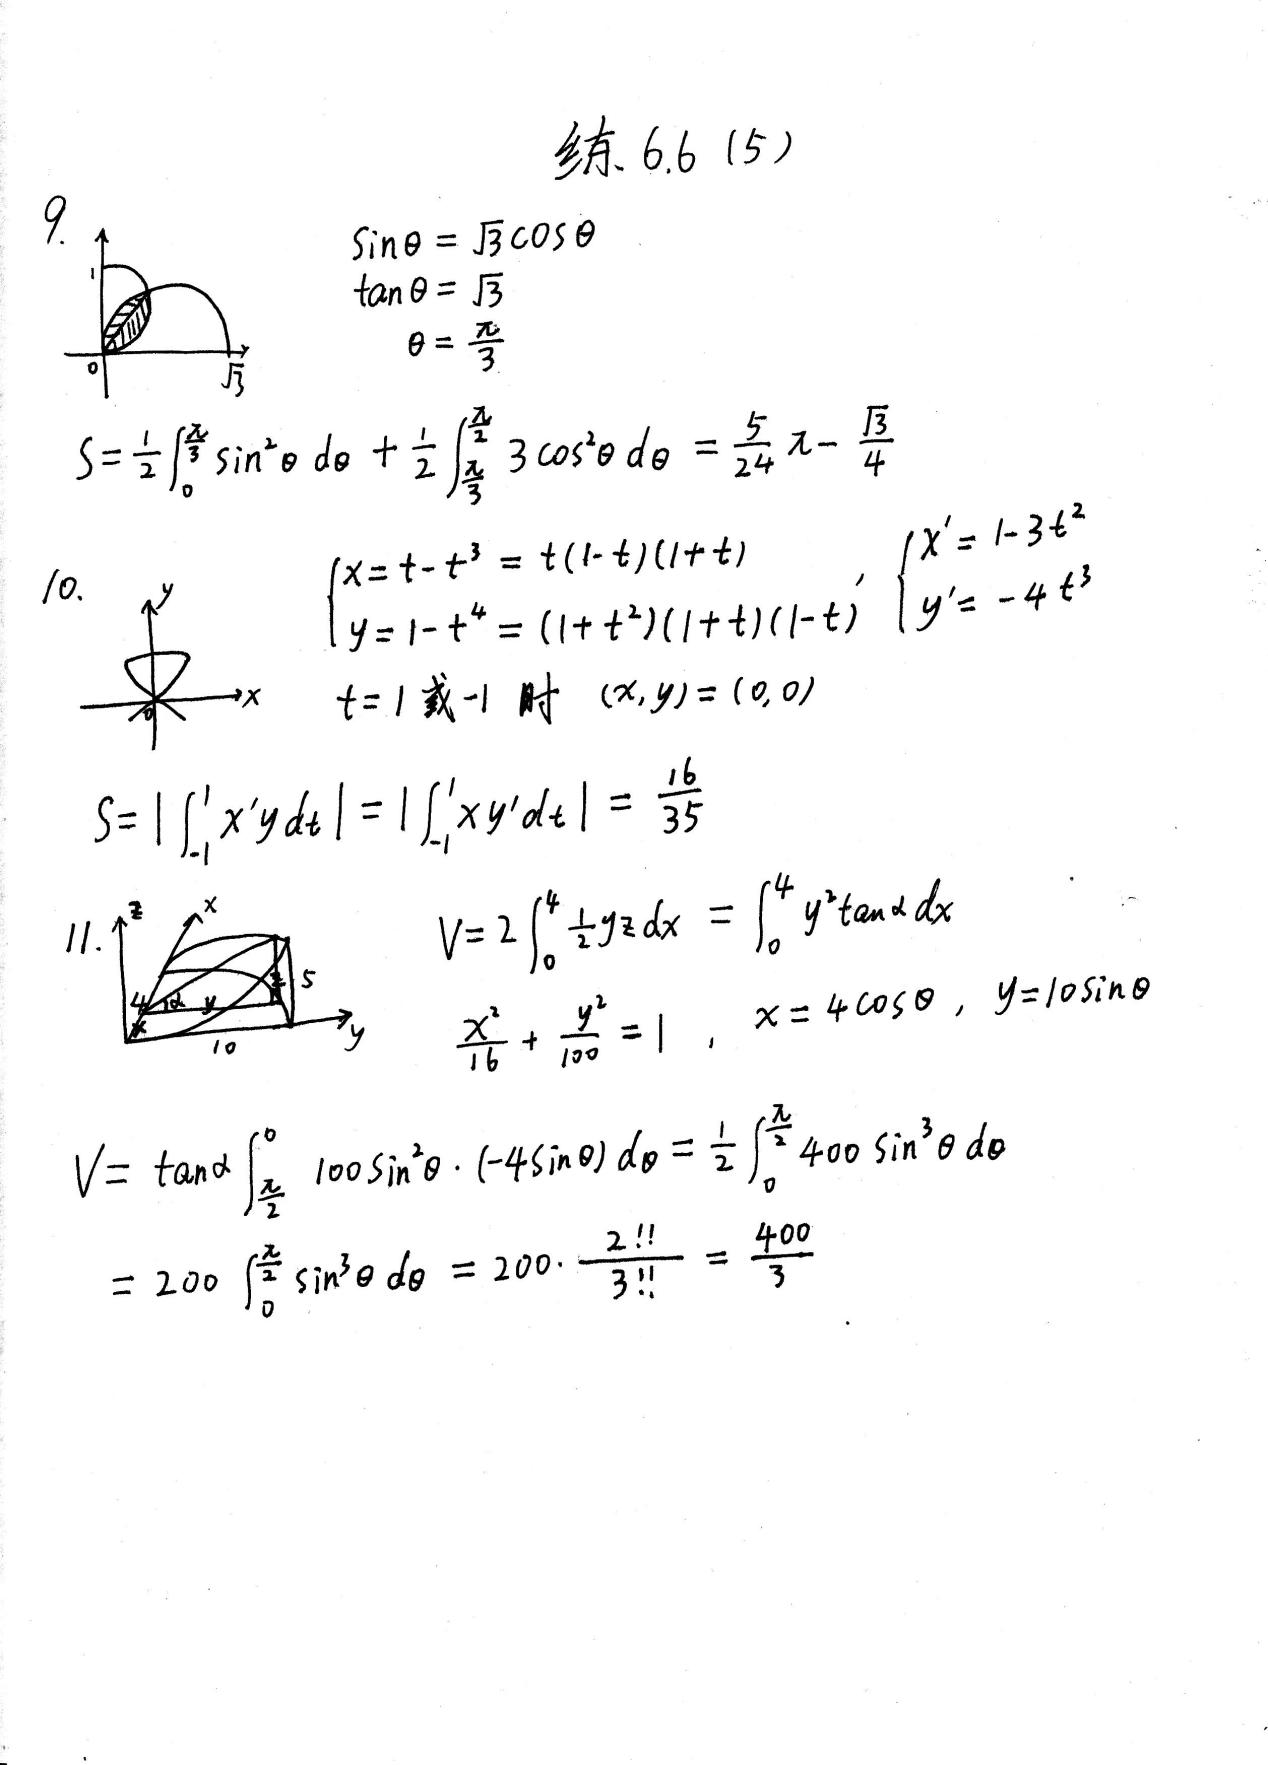 练 6.6 (5)
9.
1
0
√3
sinθ = √3 cosθ
tanθ = √3
θ = π/3
S = 1/2 ∫_0^{π/3} sin²θ dθ + 1/2 ∫_{π/3}^{π/2} 3cos²θ dθ = 5/24 π − √3/4
10.
y
x
0
{ x = t − t³ = t(1−t)(1+t)
{ y = 1 − t⁴ = (1+t²)(1+t)(1−t) , { x' = 1−3t²
{ y' = −4t³
t = 1 或 −1 时 (x, y) = (0, 0)
S = |∫_{-1}^1 x'y dt| = |∫_{-1}^1 xy' dt| = 16/35
11.
z
x
4
x
α
y
z
5
10
y
V = 2∫_0^4 1/2 yz dx = ∫_0^4 y² tanα dx
x²/16 + y²/100 = 1 , x = 4cosθ , y = 10sinθ
V = tanα ∫_{π/2}^0 100sin²θ · (−4sinθ) dθ = 1/2 ∫_0^{π/2} 400 sin³θ dθ
= 200 ∫_0^{π/2} sin³θ dθ = 200 · 2!!/3!! = 400/3